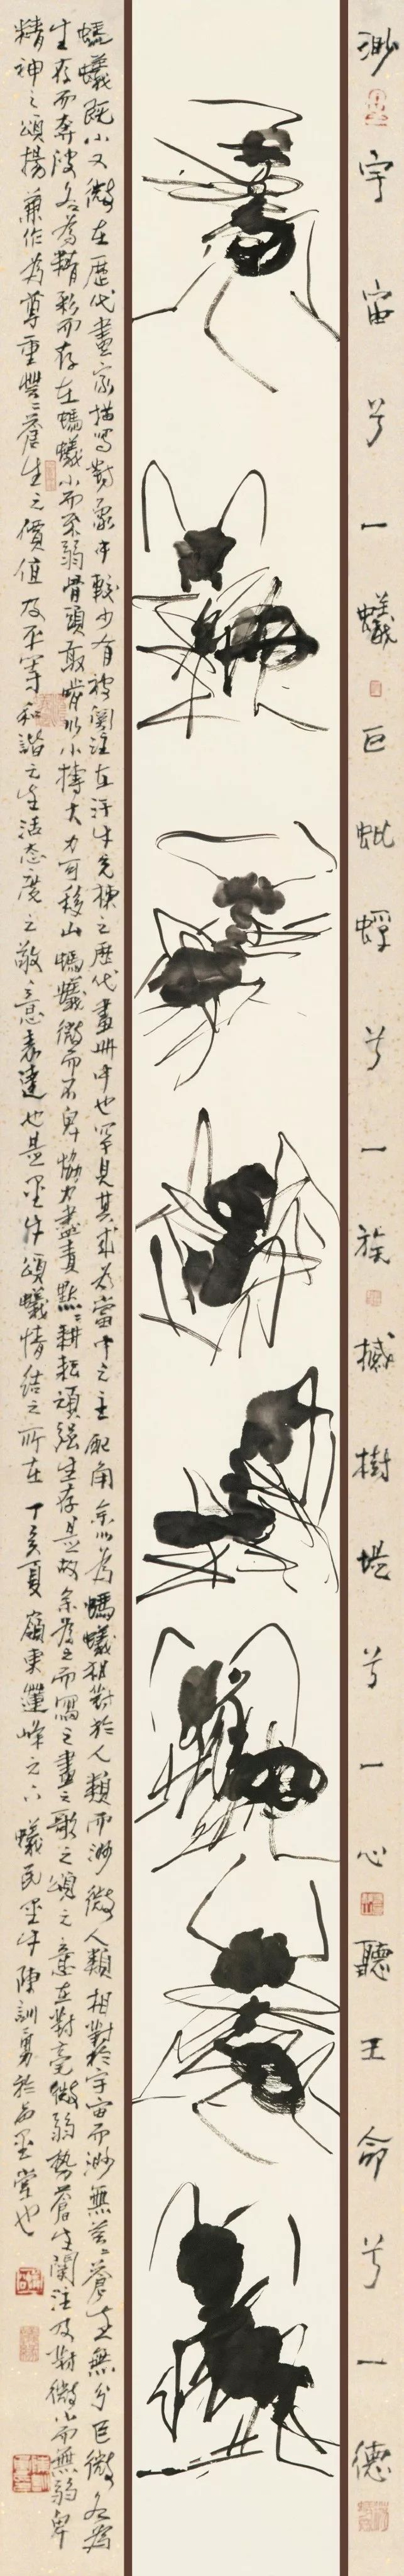 渺宇宙兮一蟻巨蚍蜉兮一族撼樹堤兮一心聽王命兮一德
蟻既小又微在歷代畫家描寫對象中較少有被關注在汗牛充棟之歷代畫冊中也罕見其或為當中之主配角余以為螞蟻相對於人類而渺微人類相對於宇宙而渺無蒼生無分巨微各為
生存而奔波各為精彩而存在螞蟻小而不弱骨頭敢啃以小搏大力可移山螞蟻微而不卑協力盡責點點耕耘頑強生存是故余為之而寫之畫之歌之頌之意在對毫微弱勢蒼生關注及對微小而無弱卑
精神之頌揚兼作為尊重豐豐蒼生之價值及平等和諧之生活态度之敬意表達也是墨牛頌蟻情結之所在丁亥夏嶺東蓮峰之六蟻民墨牛陳訓勇於墨堂也